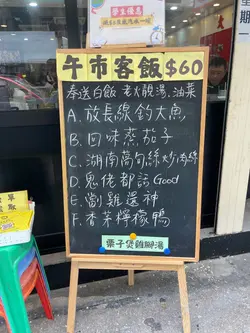 學生優惠
午市客飯$60
奉送白飯 老火靚湯、油菜
A. 放長線釣大魚
B. 回味蒸茄子
C. 湖南萵旬絲炒肉絲
D. 鬼佬都話Good
E. 劏雞還神
F. 香茅檸檬鴨
栗子煲雞腳湯